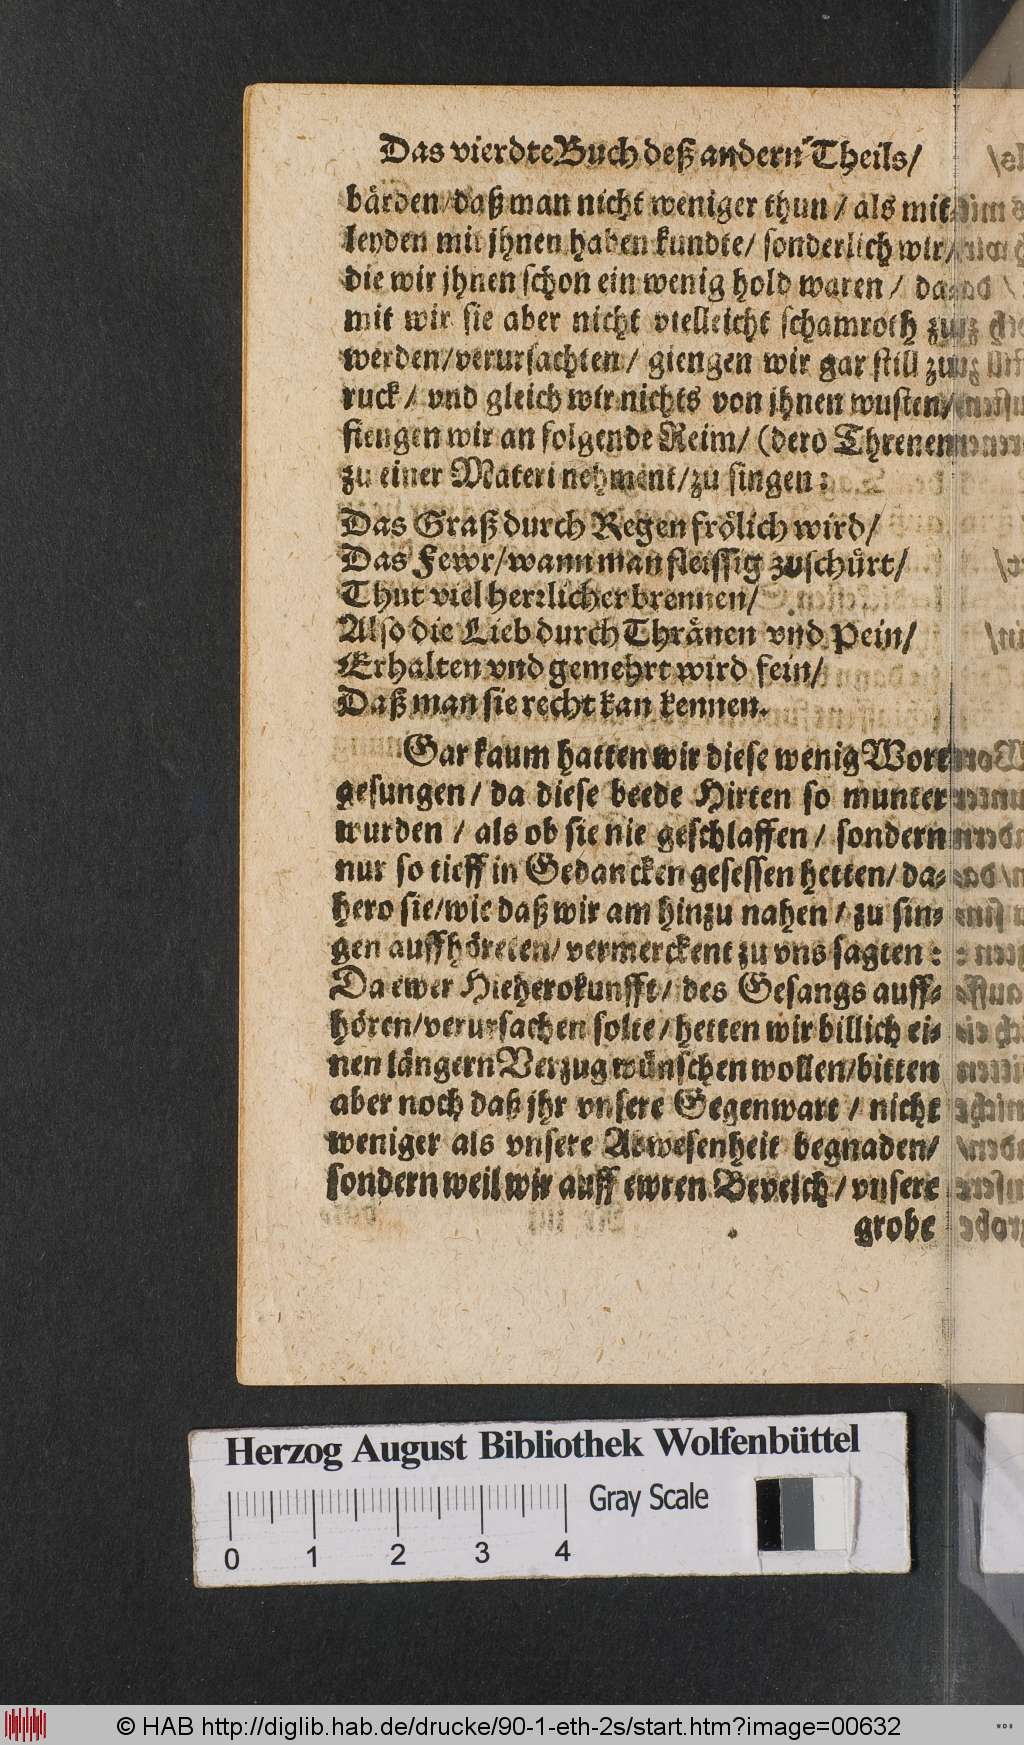 Das vierdte Buch deß andern Theils/
bärden/daß man nicht weniger thun / als mit
leyden mit jhnen haben kundte/ sonderlich wir/
die wir jhnen schon ein wenig hold waren / da-
mit wir sie aber nicht vielleicht schamroth zu
werden/verursachten/ giengen wir gar still zu
ruck/ vnd gleich wir nichts von jhnen wusten/
fiengen wir an folgende Reim/ (dero Threnen
zu einer Materi nehment/zu singen:
Das Graß durch Regen frölich wird/
Das Fewr/wann man fleissig zuschürt/
Thut viel herrlicher brennen/
Also die Lieb durch Thränen vnd Pein/
Erhalten vnd gemehrt wird fein/
Daß man sie recht kan kennen.
Gar kaum hatten wir diese wenig Wort
gesungen/ da diese beede Hirten so munter
wurden / als ob sie nie geschlaffen/ sondern
nur so tieff in Gedancken gesessen hetten/ da-
hero sie/wie daß wir am hinzu nahen / zu sin-
gen auffhöreten/ vermerckent zu vns sagten:
Da ewer Hieherokunfft/ des Gesangs auff-
hören/verursachen solte/ hetten wir billich ei-
nen längern Verzug wünschen wollen/bitten
aber noch daß jhr vnsere Gegenwart / nicht
weniger als vnsere Abwesenheit begnaden/
sondern weil wir auff ewren Bevelch/ vnsere
grobe
Herzog August Bibliothek Wolfenbüttel
Gray Scale
0 1 2 3 4
© HAB http://diglib.hab.de/drucke/90-1-eth-2s/start.htm?image=00632